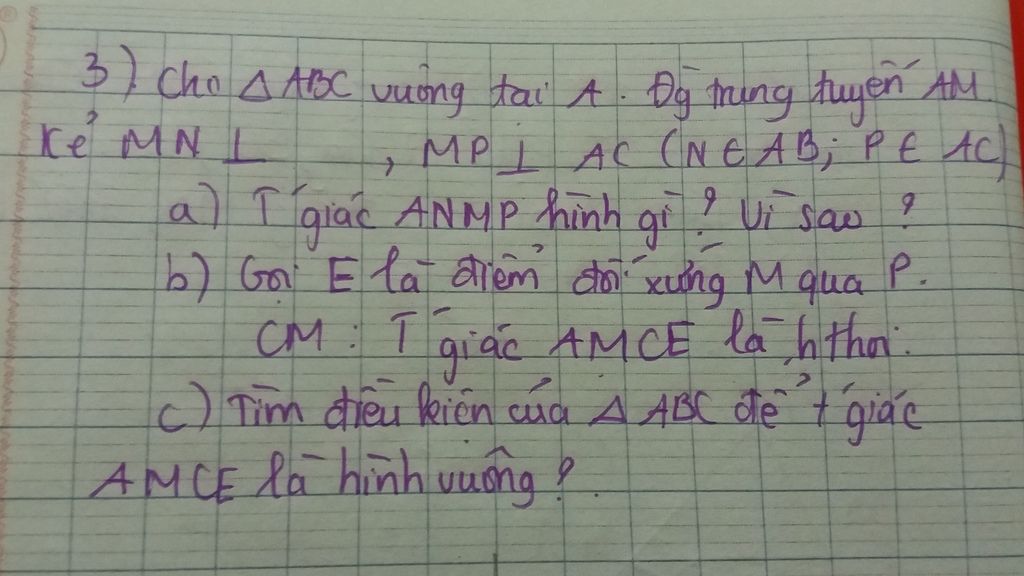 3) Cho Δ ABC vuông tại A. Đg trung tuyến AM
Kẻ MN ⊥ , MP ⊥ AC (N ∈ AB; P ∈ AC)
a) Tứ giác ANMP hình gì? Vì sao?
b) Gọi E là điểm đối xứng M qua P.
CM: Tứ giác AMCE là h thoi.
c) Tìm điều kiện của Δ ABC để tứ giác
AMCE là hình vuông?